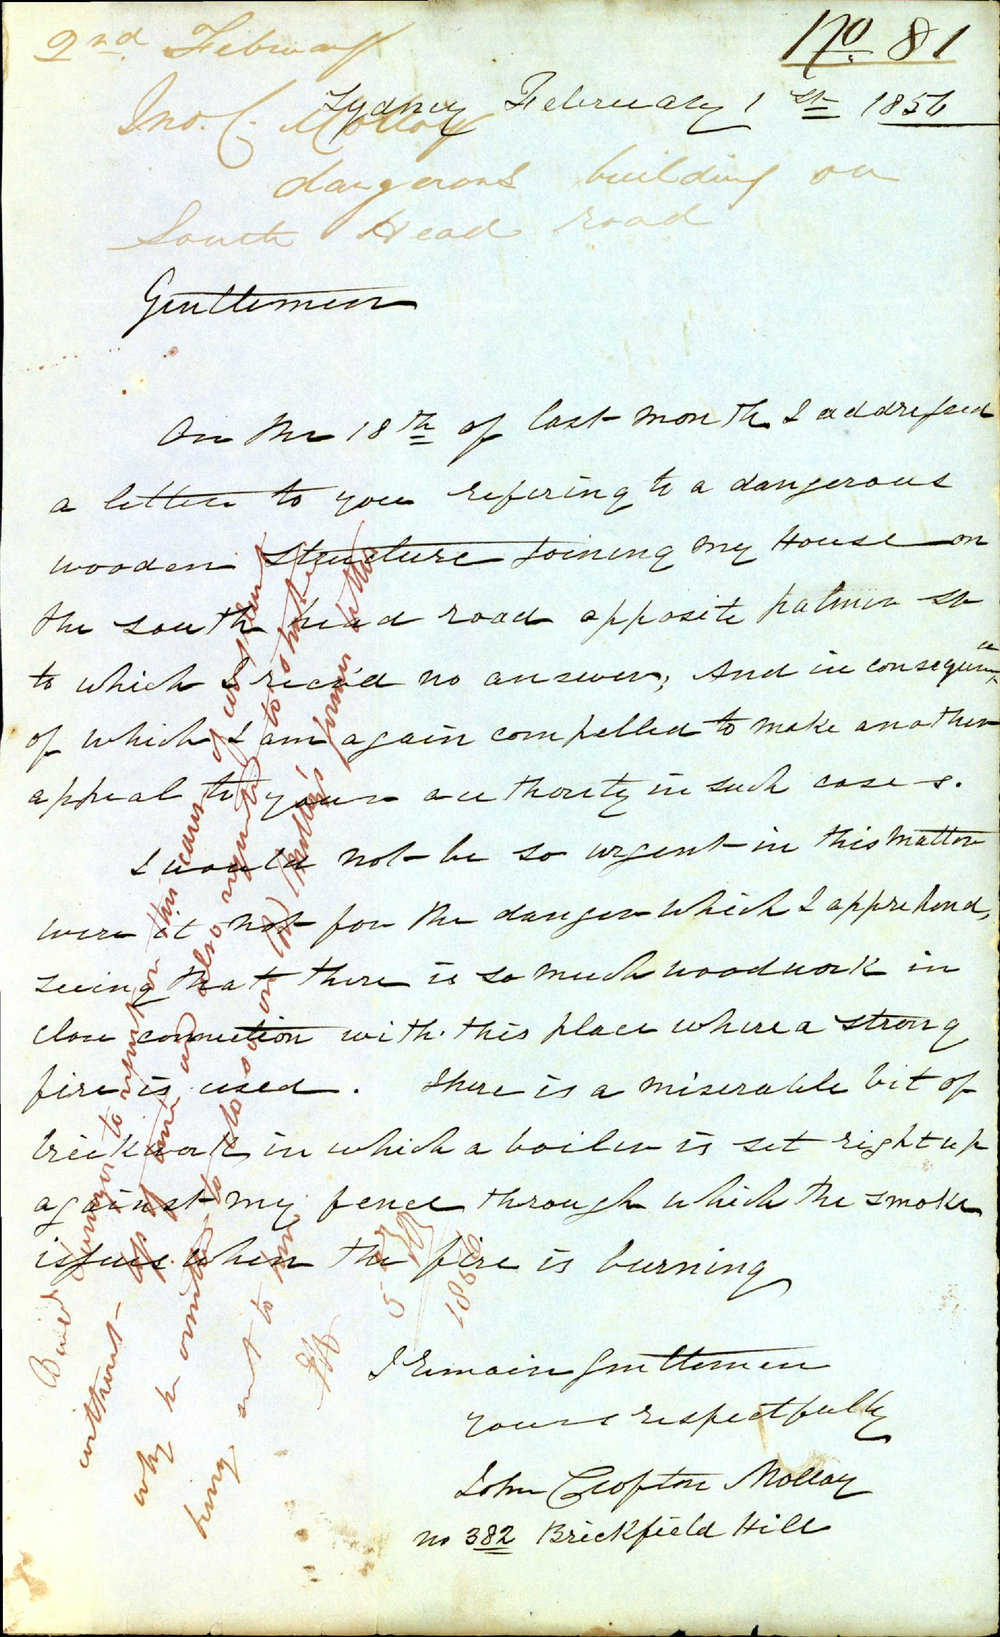 2nd. February
No. 81
Sydney February 1st 1856
Jno. C. Molloy
dangerous building on
South Head road
Gentlemen
On the 18th of last month I addressed
a letter to you refering to a dangerous
wooden structure joining my House on
the south head road opposite palmer st
to which I rec'd no answer; And in consequence
of which I am again compelled to make another
appeal to your authority in such cases.
I would not be so urgent in this matter
were it not for the danger which I apprehend,
seeing that there is so much woodwork in
close connection with this place where a strong
fire is used. There is a miserable bit of
brickwork in which a boiler is set right up
against my fence through which the smoke
issues when the fire is burning
I remain Gentlemen
yours respectfully
John Crofton Molloy
no 382 Brickfield Hill
Surveyor to report on this cause of complaint
without
why he omitted to do so on Mr Molloy's former letter
5
1856